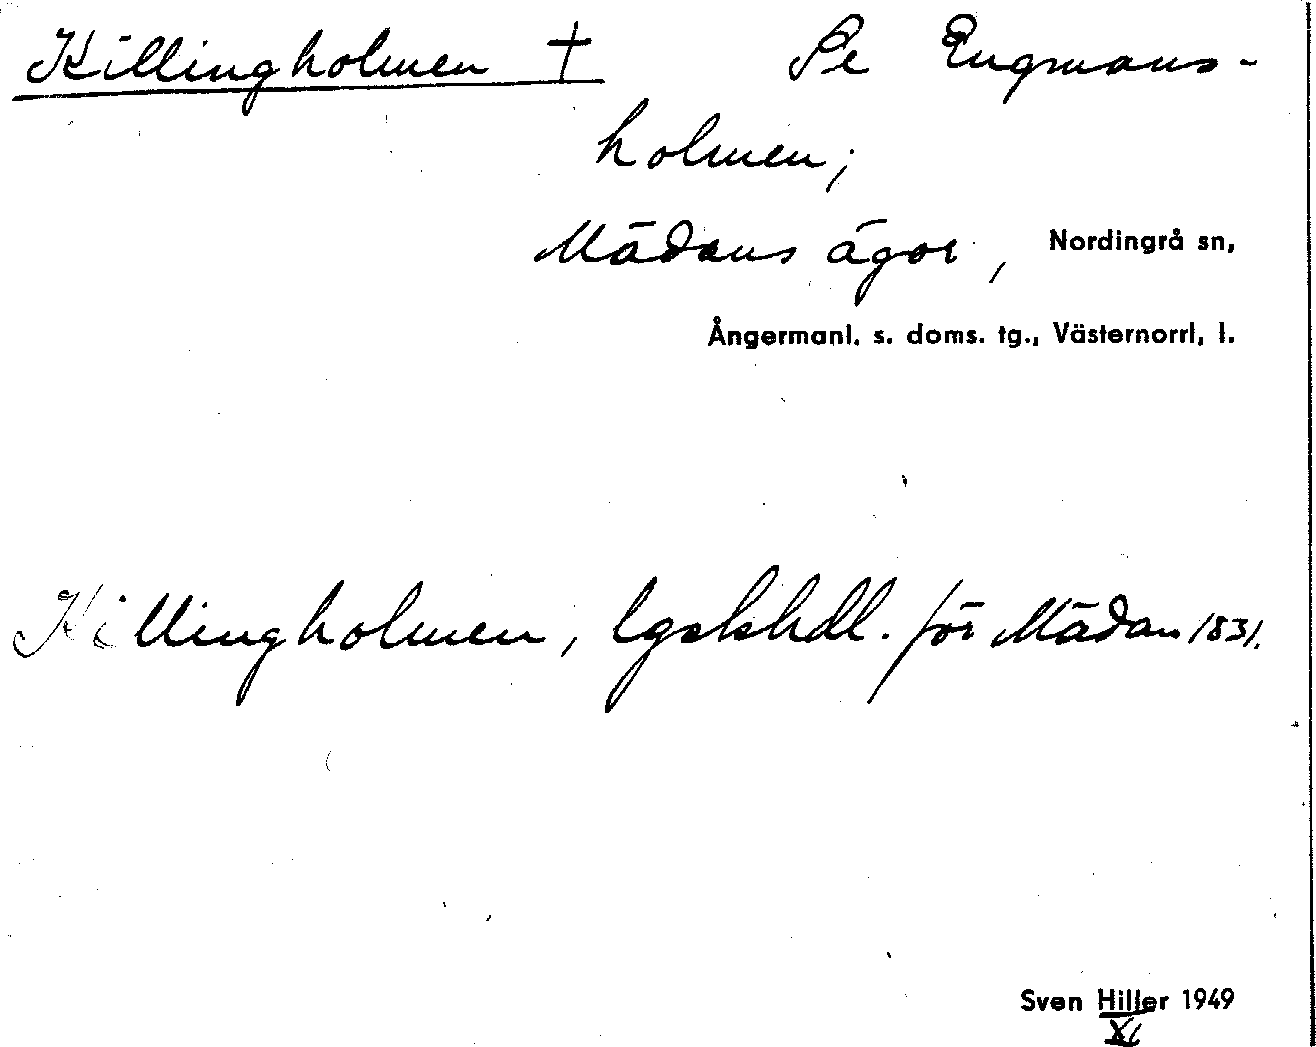 Killingholmen † Se Engmans-
holmen;
Mädans ägor, Nordingrå sn,
Ångermanl. s. doms. tg., Västernorrl, l.
Killingholmen, lgskhdl. för Mädan 1831.
Sven Hiller 1949
XI